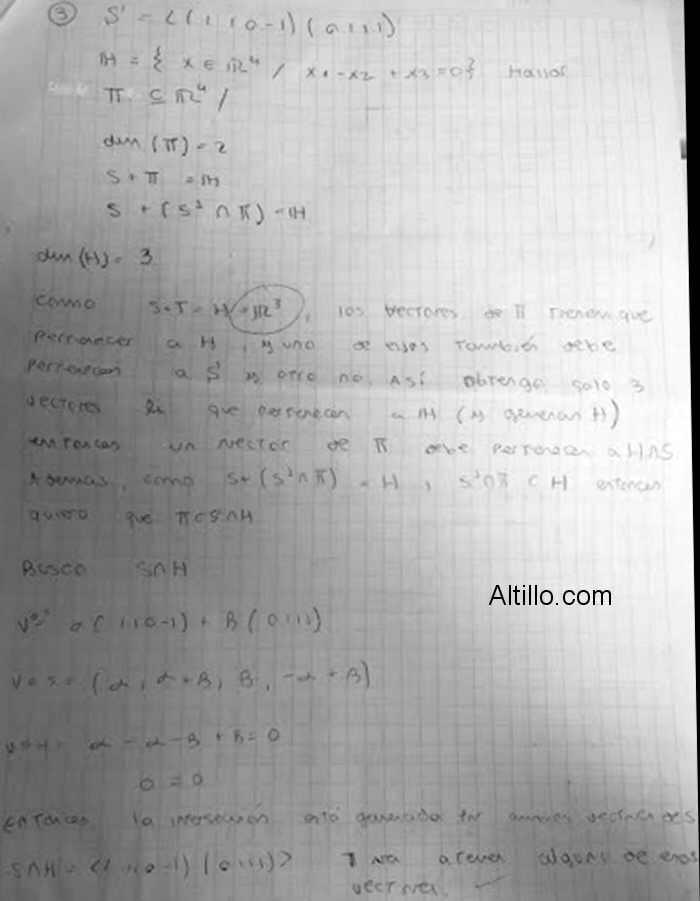 ③ S' = <(1 1 0 -1) (0 1 1 1)
H = { x ∈ R⁴ / x1 - x2 + x3 = 0} Hallar
π ⊆ R⁴ /
dim (π) = 2
S + π = H
S + (S² ∩ π) = H
dim (H) = 3
como S + T = H = R³, los vectores de π tienen que
pertenecer a H, y uno de ellos también debe
pertenecer a S y otro no. Así obtengo solo 3
vectores li que pertenecen a H (y generan H)
entonces un vector de π debe pertenecer a H∩S
Ademas, como S + (S²∩π) = H, S²∩π ⊂ H entonces
quiero que π ⊂ S∩H
Busco S∩H
Altillo.com
α(1 1 0 -1) + B(0 1 1 1)
v ∈ S = (α, α + B, B, -α + B)
α - α - B + B = 0
0 = 0
Entonces la interseccion está generada por vectores
S∩H = <(1 1 0 -1) (0 1 1 1)> T va a tener alguno de esos
vectores.